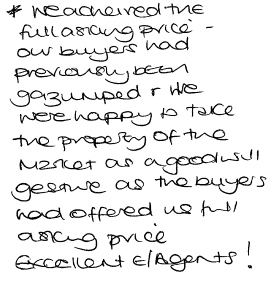 * We acheived the
full asking price -
our buyers had
previously been
gazumped & we
were happy to take
the property of the
market as a goodwill
gesture as the buyers
had offered us full
asking price
Excellent E/Agents!